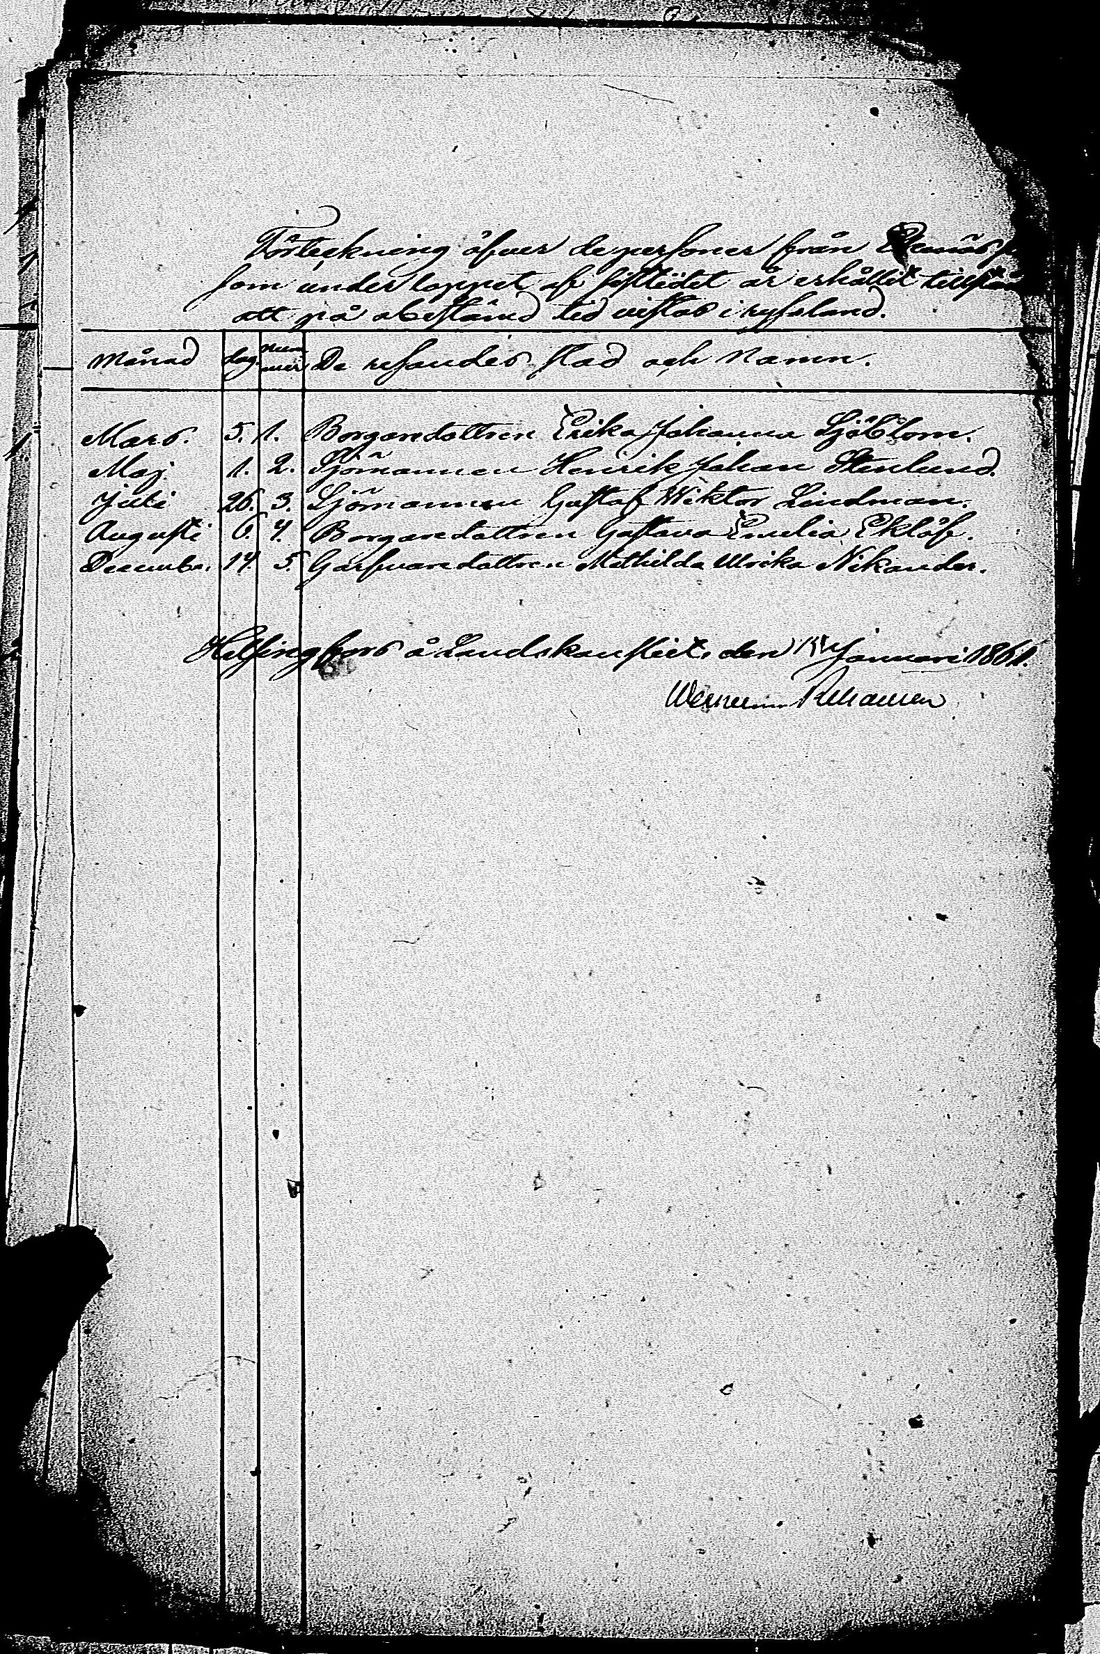 Förteckning öfver de personer från Ekenäs
som under loppet af sistlidet år erhållit tillstånd
att på obestämd tid vistas i ryssland.
Månad dag Num
mer De resandes stad och Namn.
Mars. 5. 1. Borgaredottren Erika Johanna Sjöblom.
Maj 1. 2. Sjömannen Henrik Johan Stenlund.
Juli 26. 3. Sjömannen Gustaf Wiktor Lindman.
Augusti 6. 4. Borgaredottren Gustava Emelia Eklöf.
December 14 5. Garfvaredottren Mathilda Ulrika Nikander.
Helsingfors å Landskansliet, den Januari 1861.